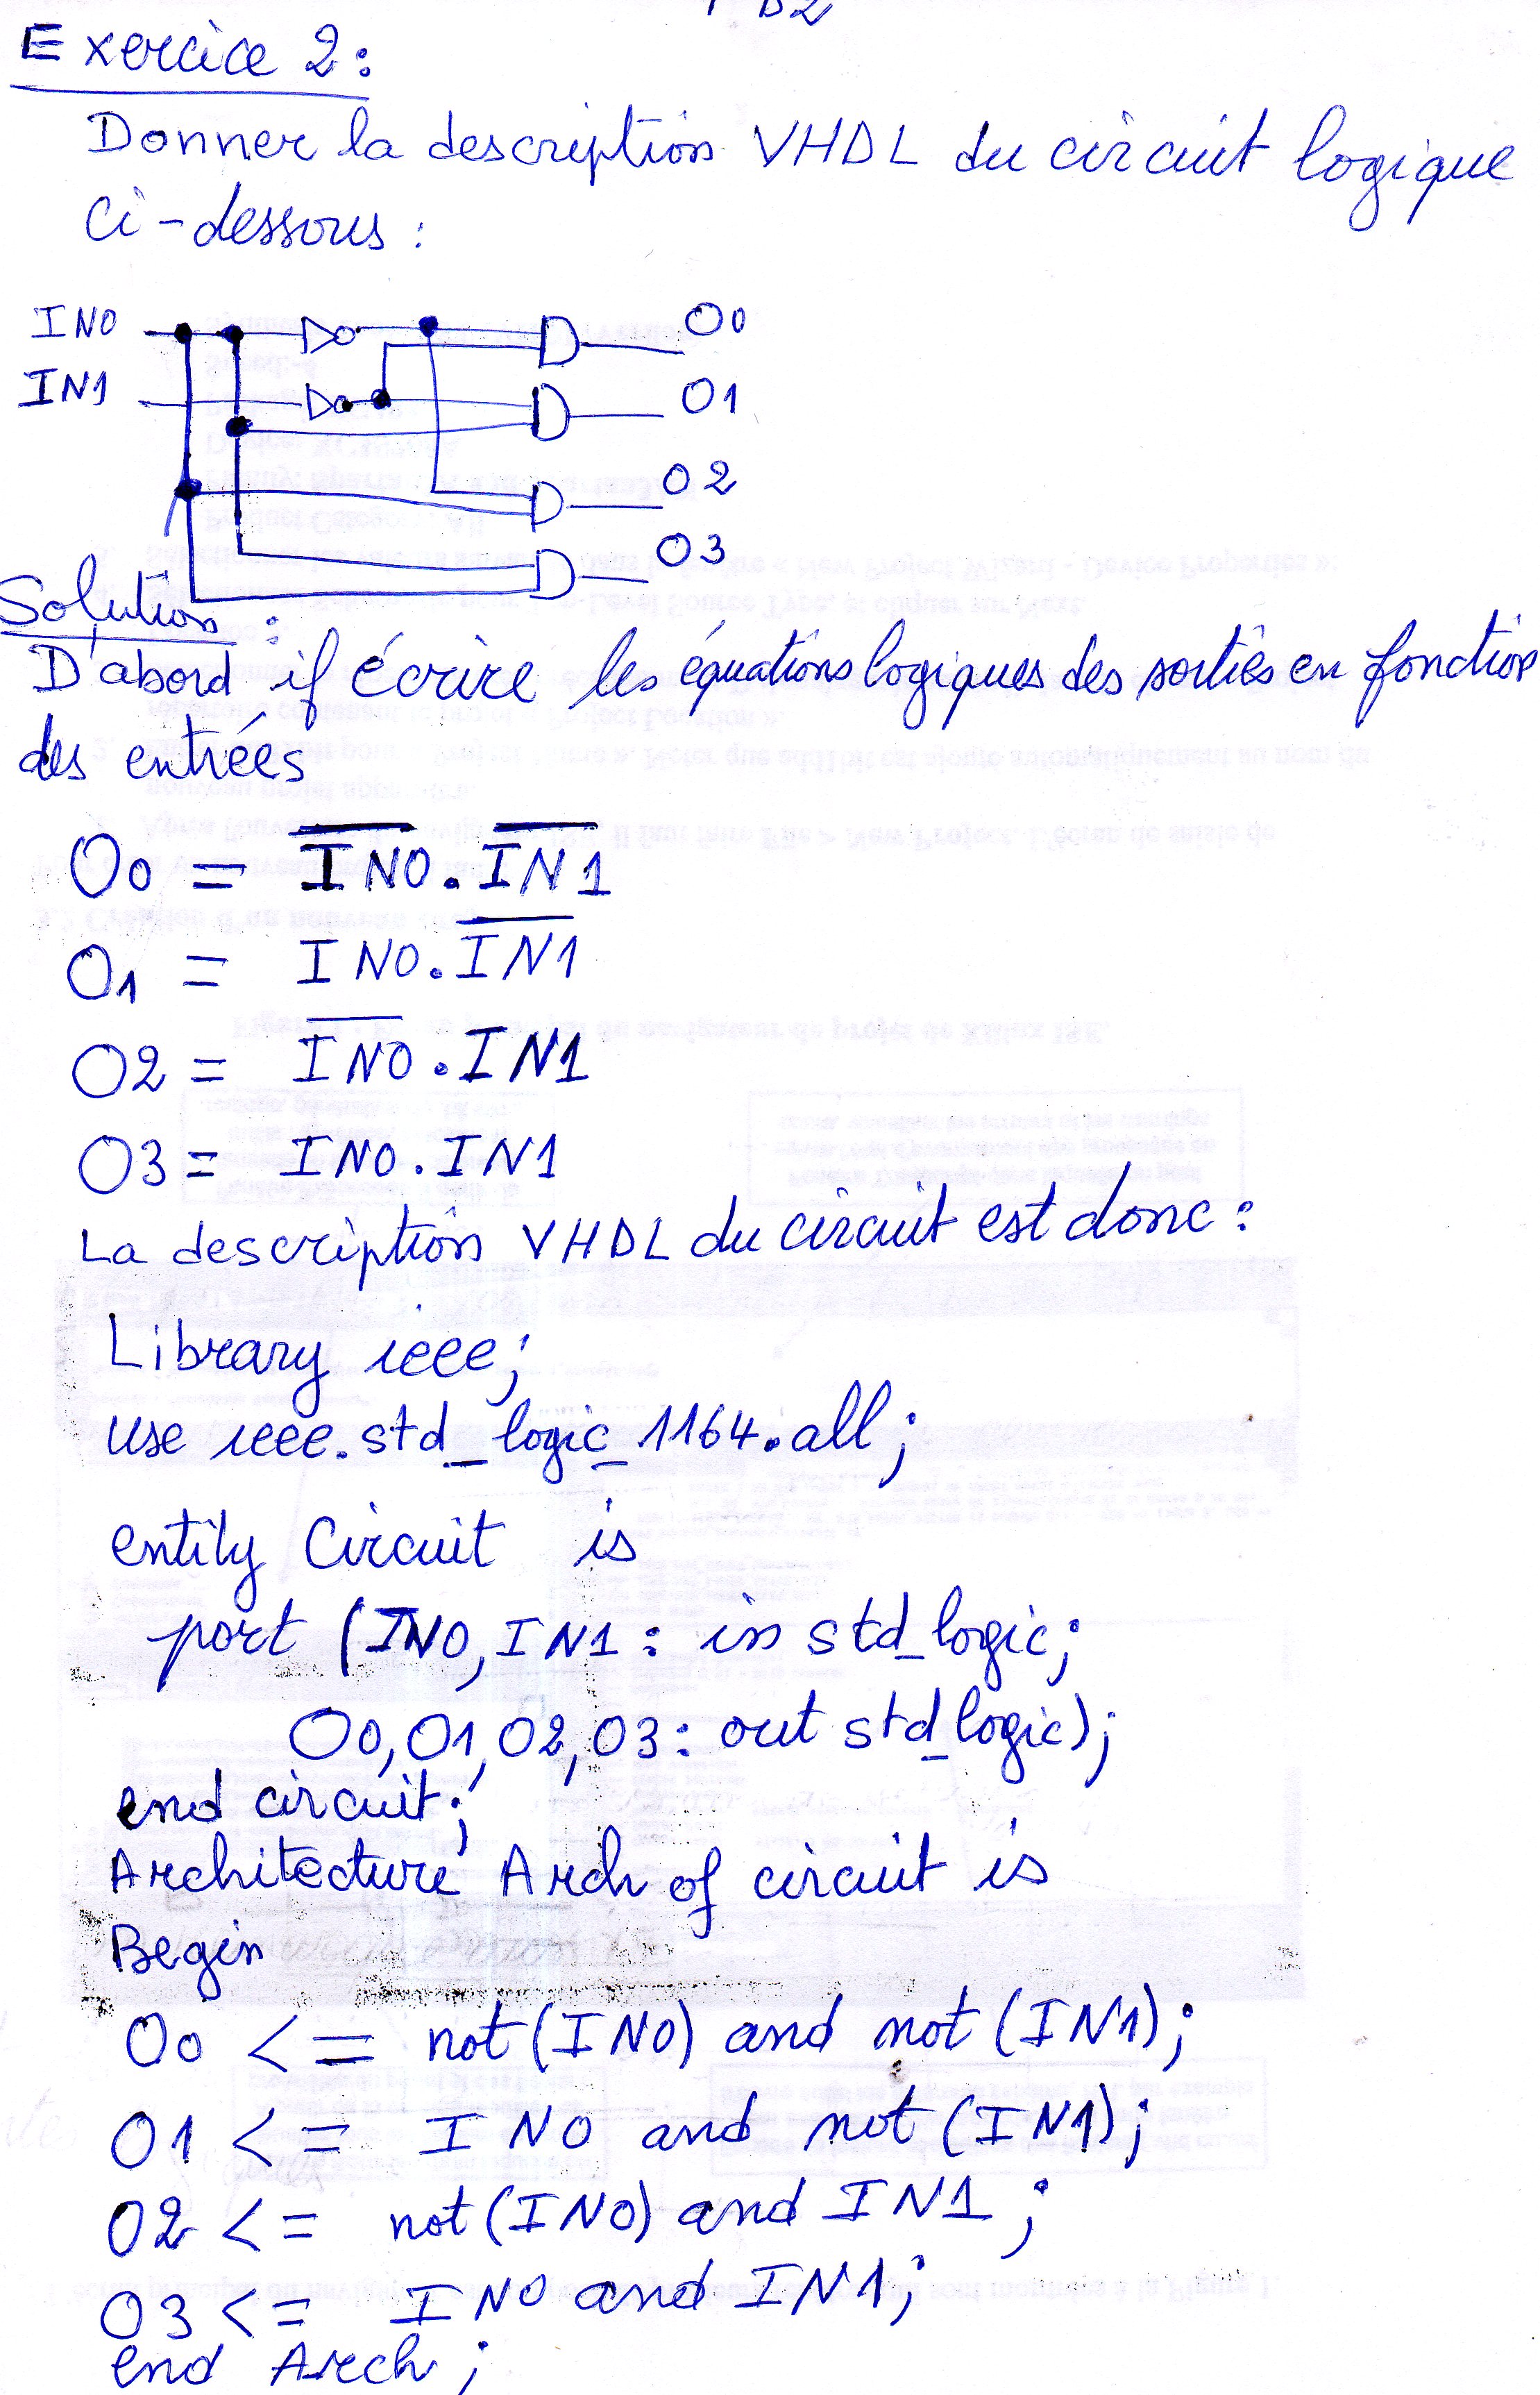 Exercice 2:
Donner la description VHDL du circuit logique
ci-dessous:
IN0
O0
IN1
O1
O2
O3
Solution:
D'abord if écrire les équations logiques des sorties en fonction
des entrées
O0 = I̅N̅0̅.I̅N̅1̅
O1 = IN0.I̅N̅1̅
O2 = I̅N̅0̅.IN1
O3 = IN0.IN1
La description VHDL du circuit est donc:
Library ieee;
use ieee.std_logic_1164.all;
entity Circuit is
port (IN0, IN1: in std_logic;
O0, O1, O2, O3: out std_logic);
end circuit;
Architecture Arch of circuit is
Begin
O0 <= not(IN0) and not (IN1);
O1 <= IN0 and not (IN1);
O2 <= not(IN0) and IN1;
O3 <= IN0 and IN1;
end Arch;